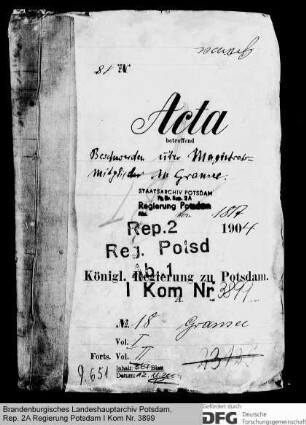 Gransee
Acta
betreffend
Beschwerden über Magistrats-
mitglieder in Gransee.
STAATSARCHIV POTSDAM
Pr. Br. Rep. 2A
Regierung Potsdam
von 1817
Rep.2 1904
Reg. Potsd
Königl. Regierung zu Potsdam.
I Kom Nr. 3899
No. 18 Gransee
Vol. I
Forts. Vol. II
9.651
Inhalt: Blatt
Datum:
Brandenburgisches Landeshauptarchiv Potsdam,
Rep. 2A Regierung Potsdam I Kom Nr. 3899
Gefördert durch
DFG Deutsche
Forschungsgemeinschaft